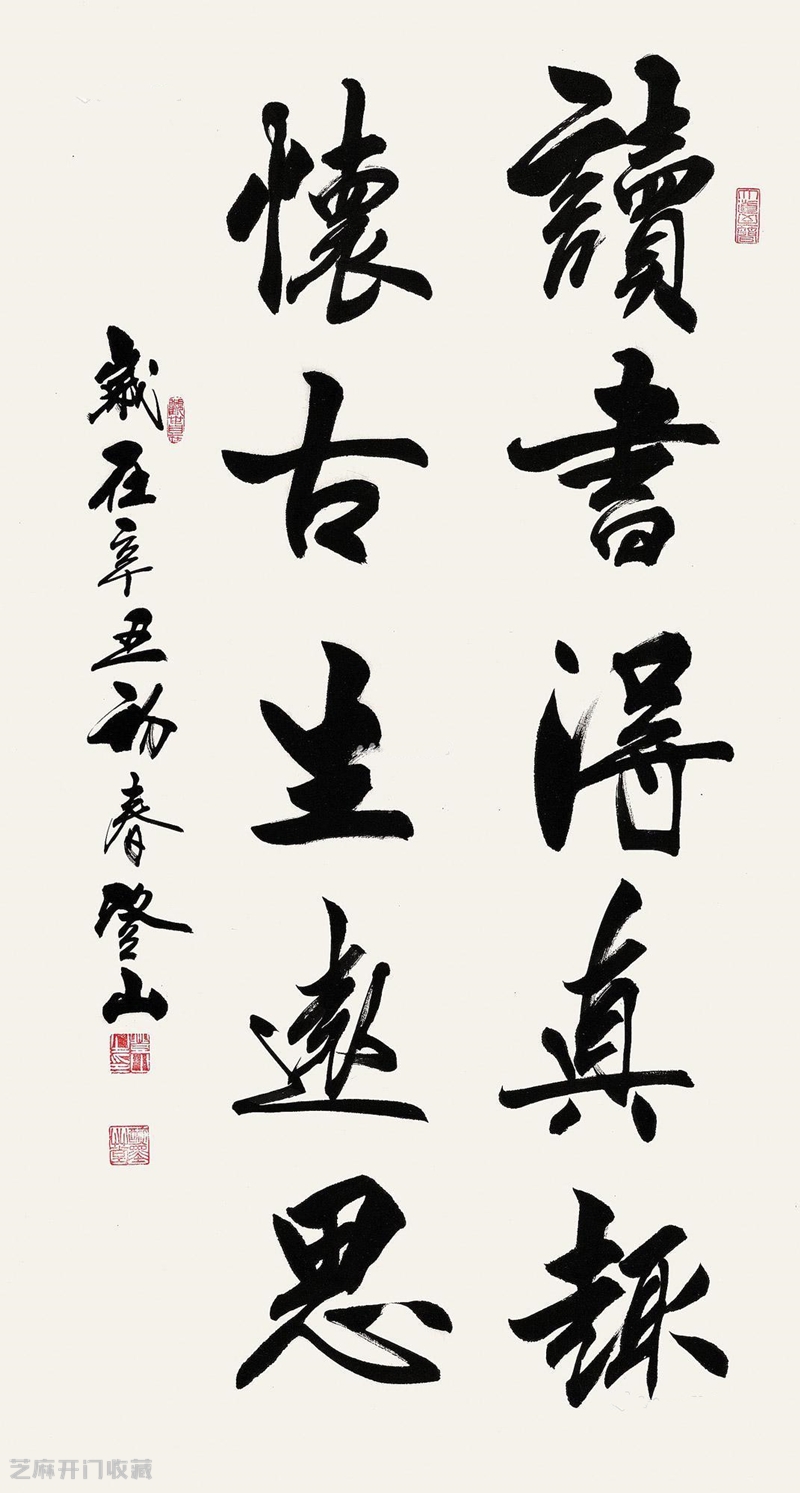 讀書得真趣
懷古生遠思
歲在辛丑初春登山
芝麻开门收藏